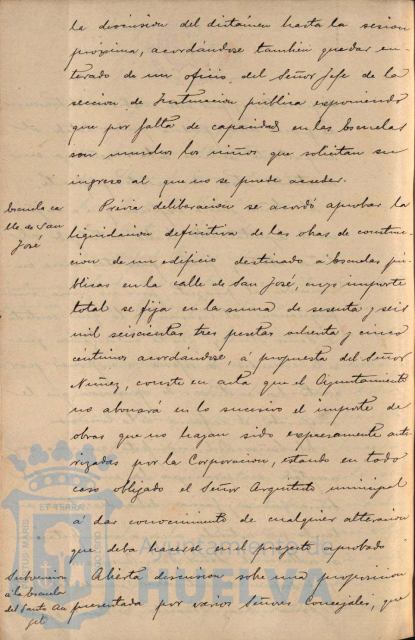 la discusion del dictámen hasta la sesion
próxima, acordándose tambien quedar en-
terado de un oficio del Señor Jefe de la
seccion de Instruccion pública exponiendo
que por falta de capacidad en las Escuelas
son muchos los niños que solicitan su
ingreso al que no se puede acceder.
Escuela ca-
lle de San
José
Prévia deliberacion se acordó aprobar la
liquidacion definitiva de las obras de construc-
cion de un edificio destinado á Escuelas pú-
blicas en la calle de San José, cuyo importe
total se fija en la suma de sesenta y seis
mil seiscientas tres pesetas ochenta y cinco
céntimos acordándose, á propuesta del Señor
Nuñez, conste en acta que el Ayuntamiento
no abonará en lo sucesivo el importe de
obras que no hayan sido expresamente auto-
rizadas por la Corporacion, estando en todo
caso obligado el Señor Arquitecto municipal
á dar conocimiento de cualquier alteracion
que deba hacerse en el proyecto aprobado
Subvencion
á la Escuela
del Santo An-
gel
Abierta discusion sobre una proposicion
presentada por varios Señores Concejales, que
Ayuntamiento de
HUELVA